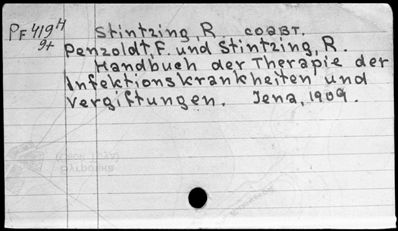 Pf 419 H
9+
Stintzing, R. соавт.
Penzoldt, F. und Stintzing, R.
Handbuch der Therapie der
Infektionskrankheiten und
Vergiftungen. Jena, 1909.